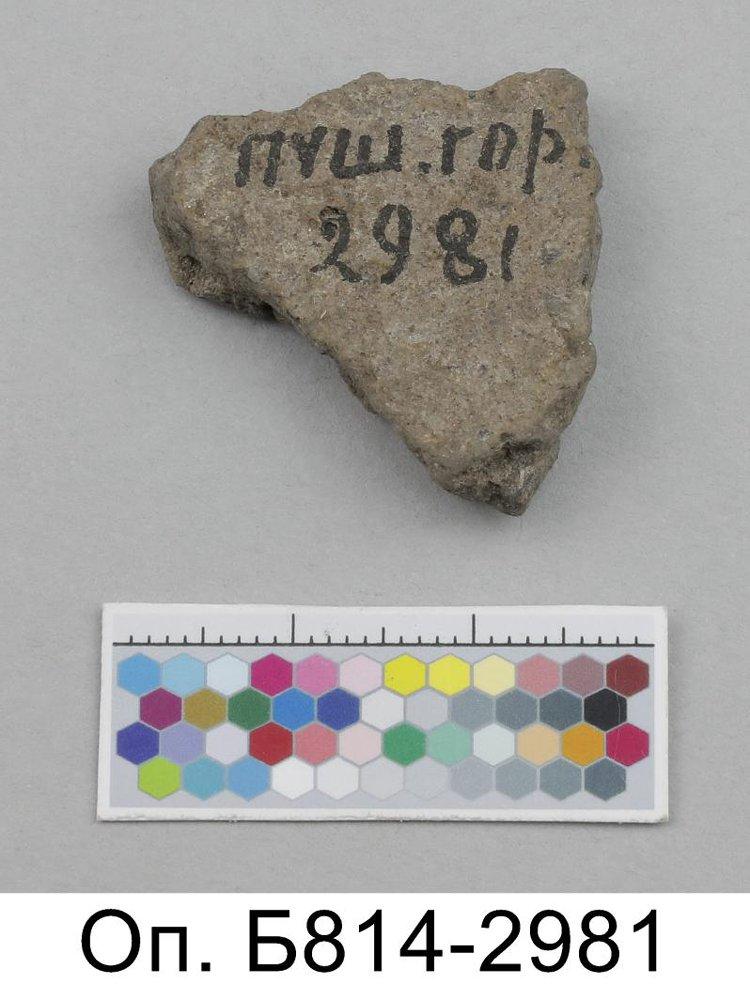 пуш.гор.
2981
Оп. Б814-2981